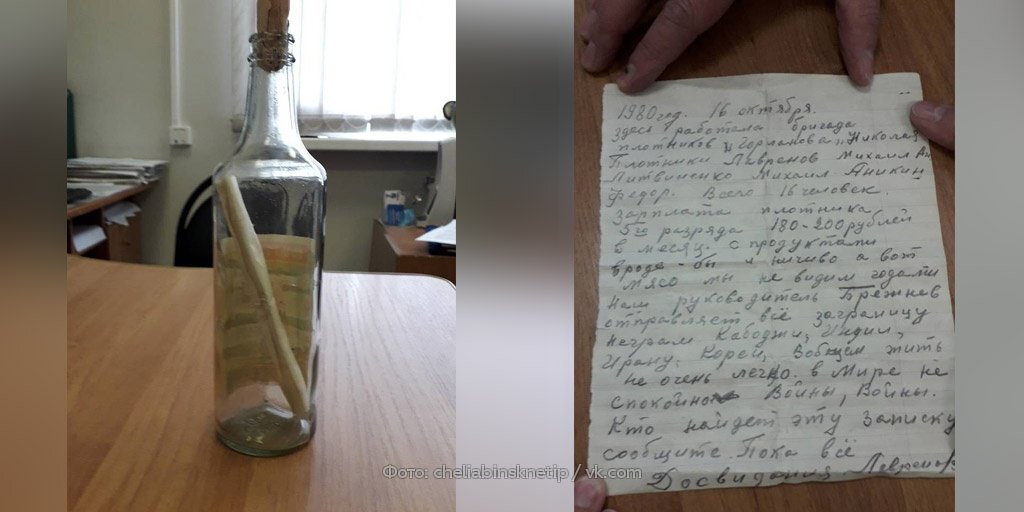 1980 год. 16 октября.
здесь работала бригада
плотников Горланова Николая
Плотники Лавренов Михаил
Литвиненко Михаил Аникин
Федор. Всего 16 человек.
зарплата плотника
5го разряда 180-200 рублей
в месяц. с продуктами
вроде бы и ничиво а вот
мясо мы не видим годами
наш руководитель Брежнев
отправляет всё заграницу
неграм Кабоджи, Индии,
Ирану. Кореи, Вобщем жить
не очень легко. в Мире не
спокойно Войны, Войны.
Кто найдет эту записку
сообщите. Пока всё
Досвидания Лавренов
Фото: cheliabinsknetip / vk.com